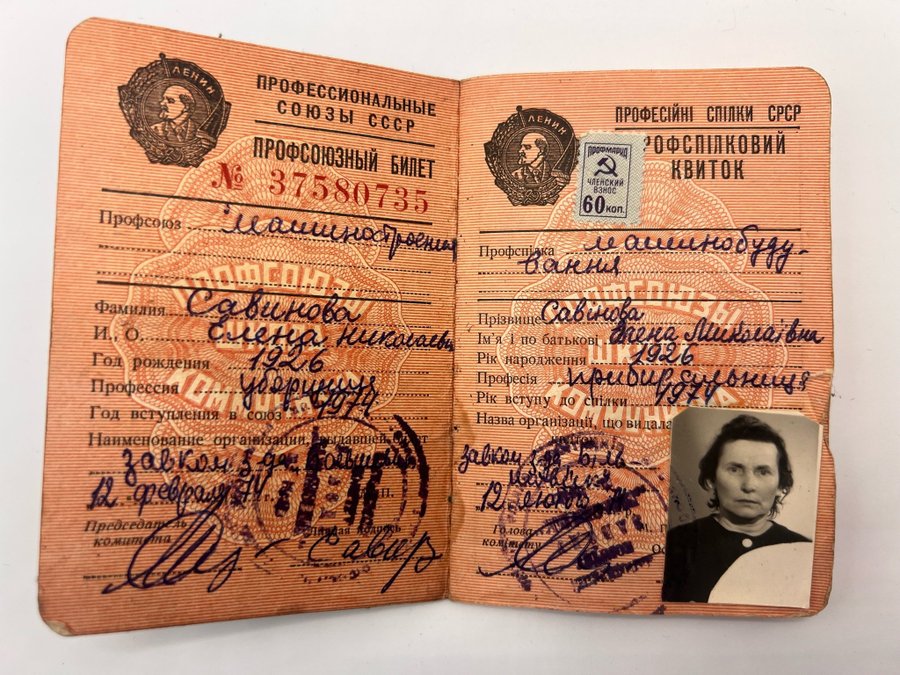 ЛЕНИН
ПРОФЕССИОНАЛЬНЫЕ
СОЮЗЫ СССР
ПРОФСОЮЗНЫЙ БИЛЕТ
№ 37580735
Профсоюз Машиностроения
Фамилия Савинова
И. О. Елена Николаевна
Год рождения 1926
Профессия уборщица
Год вступления в союз 1974
Наименование организации, выдавшей билет
завком з-да
12 февраля 74
Председатель
комитета
Личная подпись
ЛЕНИН
ПРОФЕСІЙНІ СПІЛКИ СРСР
ПРОФСПІЛКОВИЙ
КВИТОК
ПРОФМАРКА
ЧЛЕНСКИЙ
ВЗНОС
60 КОП.
Профспілка машинобуду-
вання
Прізвище Савінова
Ім'я і по батькові Олена Миколаївна
Рік народження 1926
Професія прибиральниця
Рік вступу до спілки 1974
Назва організації, що видала
квиток
завком з-да Біль-
12 лютого 74
Голова
комітету